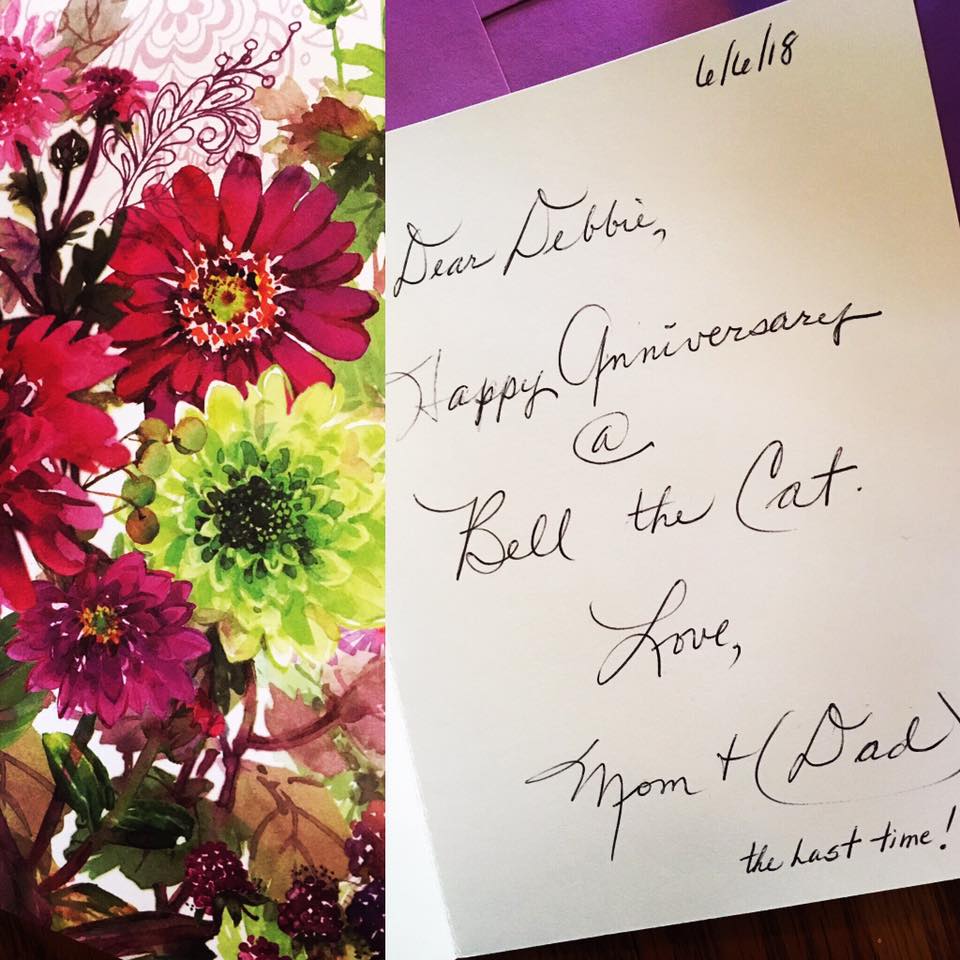 6/6/18
Dear Debbie,
Happy Anniversary
@
Bell the Cat.
Love,
Mom + (Dad)
the last time!